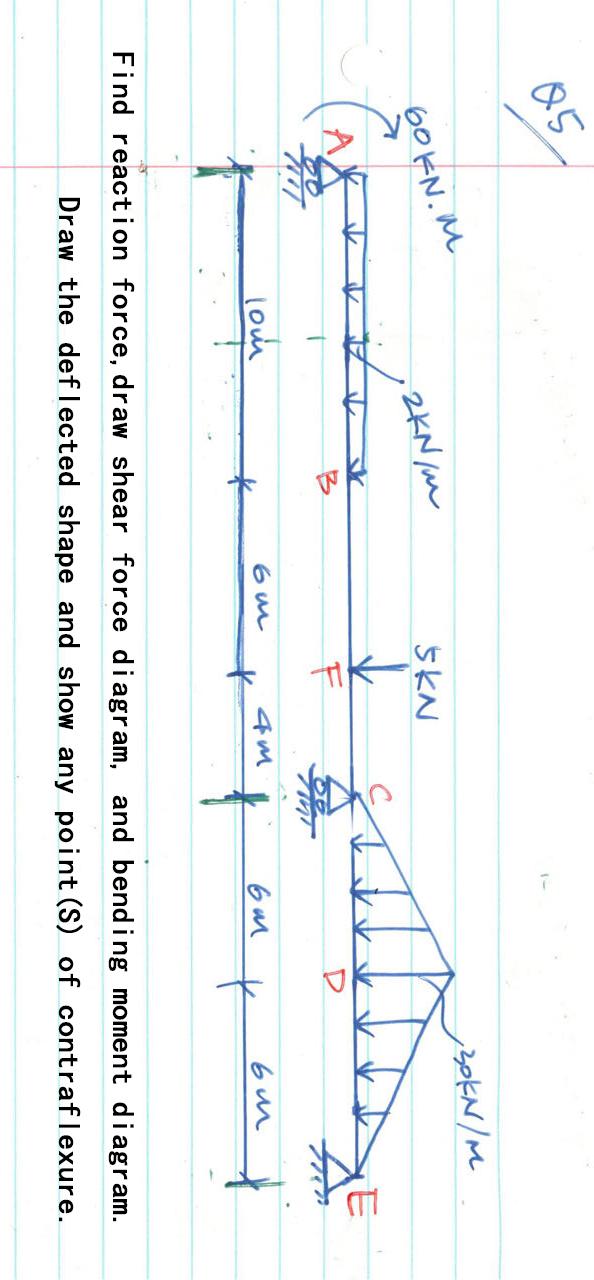 Q5
60KN.m
2KN/m
5KN
30KN/m
A
B
F
C
D
E
10m
6m
4m
6m
6m
Find reaction force,draw shear force diagram, and bending moment diagram.
Draw the deflected shape and show any point(S) of contraflexure.